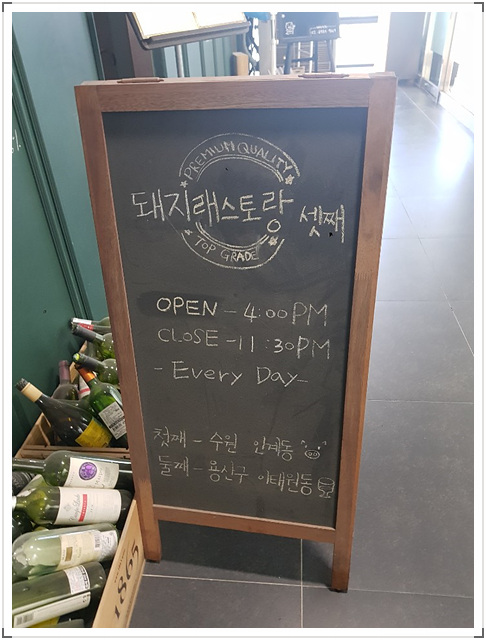 PREMIUM QUALITY
돼지래스토랑 셋째
TOP GRADE
OPEN - 4:00PM
CLOSE - 11:30PM
- Every Day -
첫째 - 수원 인계동
둘째 - 용산구 이태원동
1865